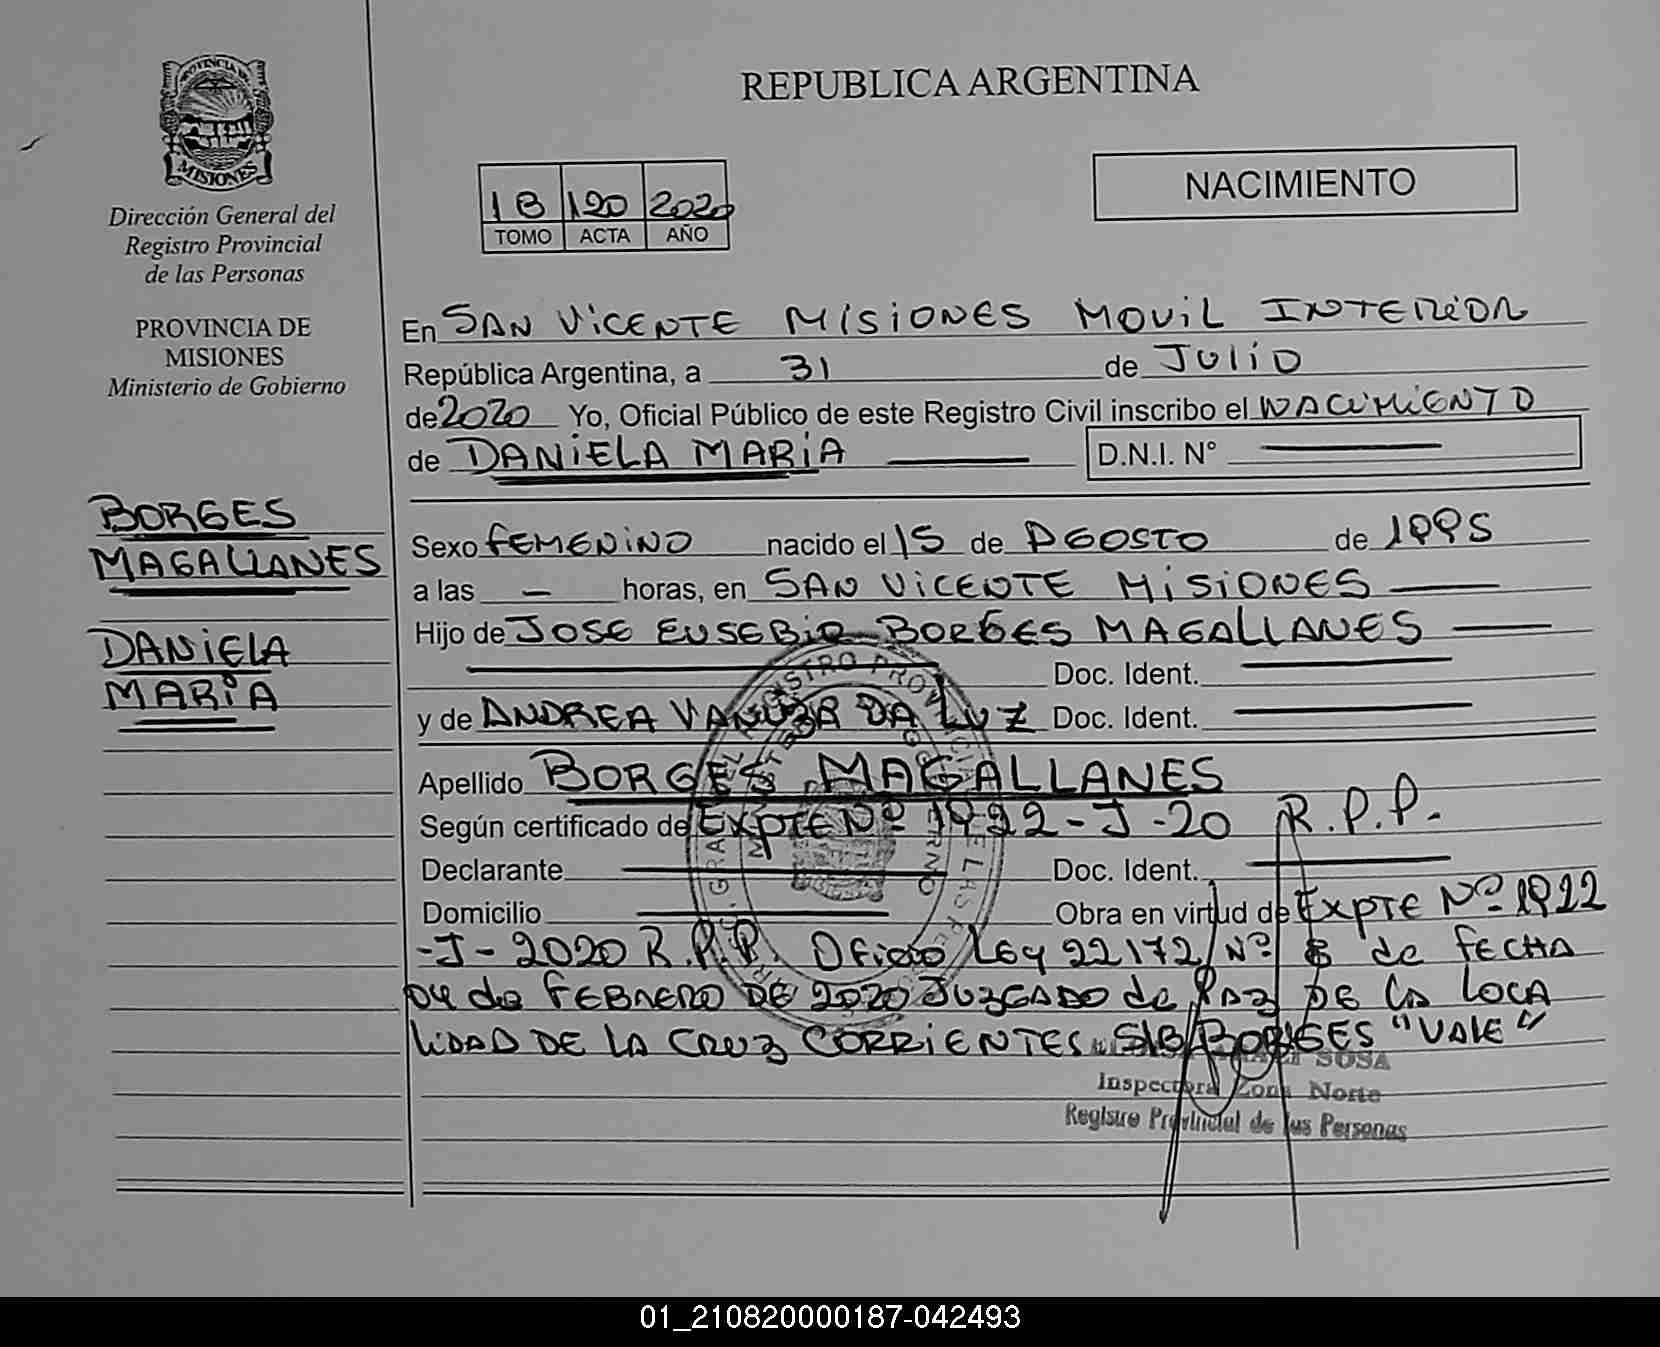 PROVINCIA DE
MISIONES
Dirección General del
Registro Provincial
de las Personas
PROVINCIA DE
MISIONES
Ministerio de Gobierno
BORGES
MAGALLANES
DANIELA
MARIA
REPUBLICA ARGENTINA
NACIMIENTO
1B 120 2020
TOMO ACTA AÑO
En SAN VICENTE MISIONES MOVIL INTERIOR
República Argentina, a 31 de JULIO
de 2020 Yo, Oficial Público de este Registro Civil inscribo el NACIMIENTO
de DANIELA MARIA D.N.I. N°
Sexo FEMENINO nacido el 15 de AGOSTO de 1995
a las - horas, en SAN VICENTE MISIONES
Hijo de JOSE EUSEBIO BORGES MAGALLANES
Doc. Ident.
y de ANDREA VANUZA DA LUZ Doc. Ident.
Apellido BORGES MAGALLANES
Según certificado de EXPTE Nº 1922-J-20 R.P.P.
Declarante Doc. Ident.
Domicilio Obra en virtud de EXPTE Nº 1922
-J-2020 R.P.P. Oficio Ley 22172 Nº de FECHA
04 de FEBRERO DE 2020 JUZGADO de PAZ DE LA LOCA
LIDAD DE LA CRUZ CORRIENTES S/B BORGES "VALE"
SOSA
Inspectora Zona Norte
Registro Provincial de las Personas
01_210820000187-042493